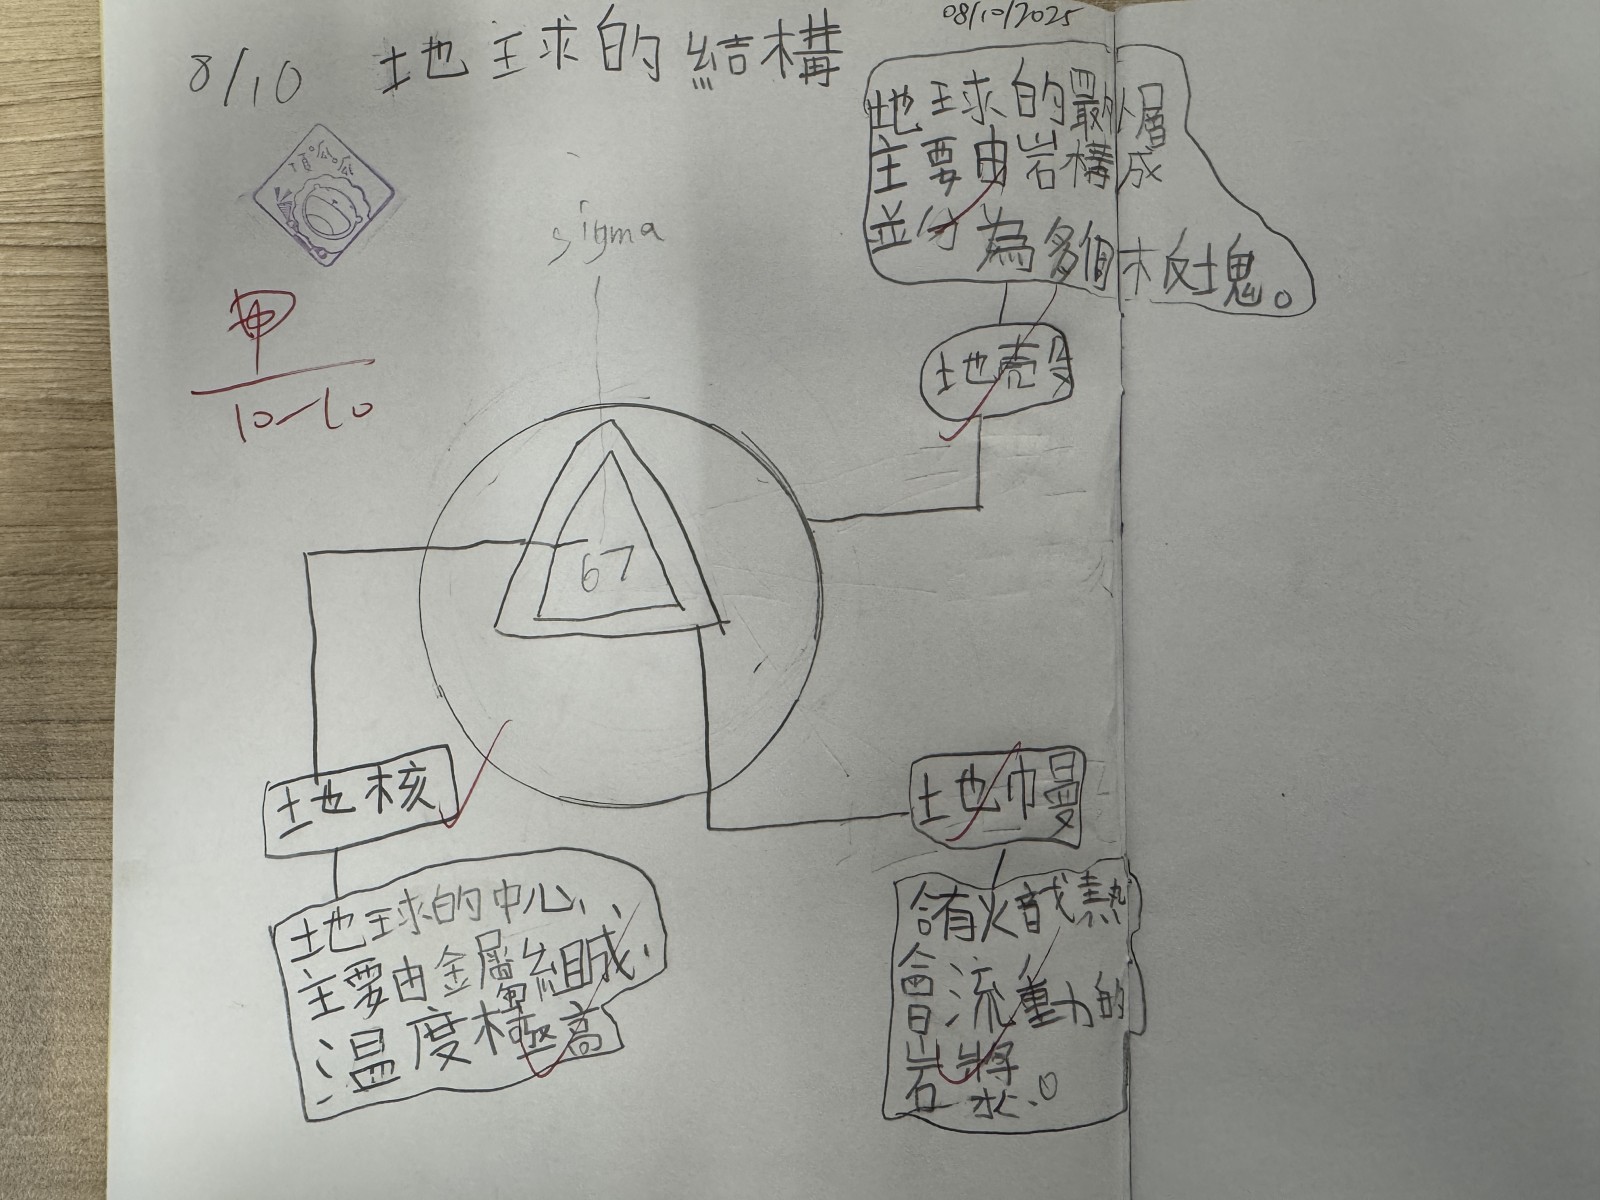 08/10/2025
8/10 地球的結構
地球的最外層
主要由岩構成
並分為多個板塊。
頂呱呱
sigma
甲
10-10
地殼
67
地核
地幔
地球的中心,
主要由金屬組成,
溫度極高
含有熾熱
會流動的
岩漿。